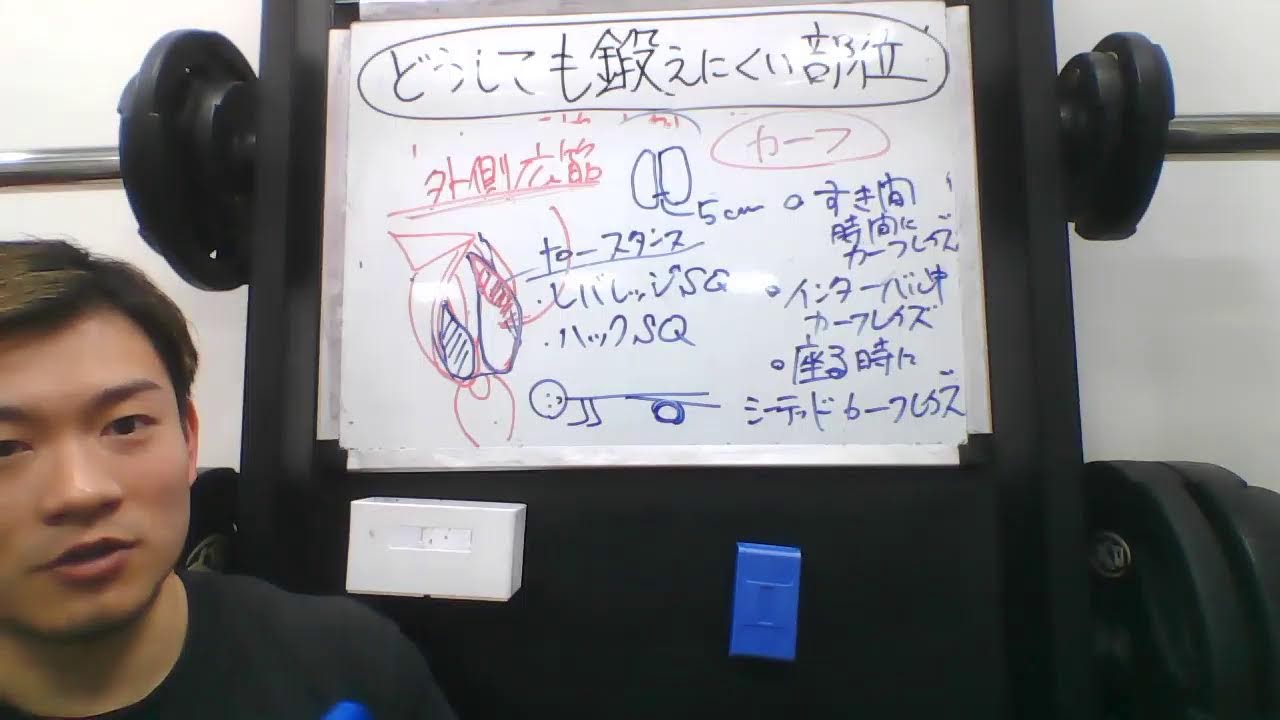 どうしても鍛えにくい部位
外側広筋
5cm
ナロースタンス
・レバレッジSQ
・ハックSQ
カーフ
○すき間
時間に
カーフレイズ
○インターバル中
カーフレイズ
○座る時に
シーテッドカーフレイズ